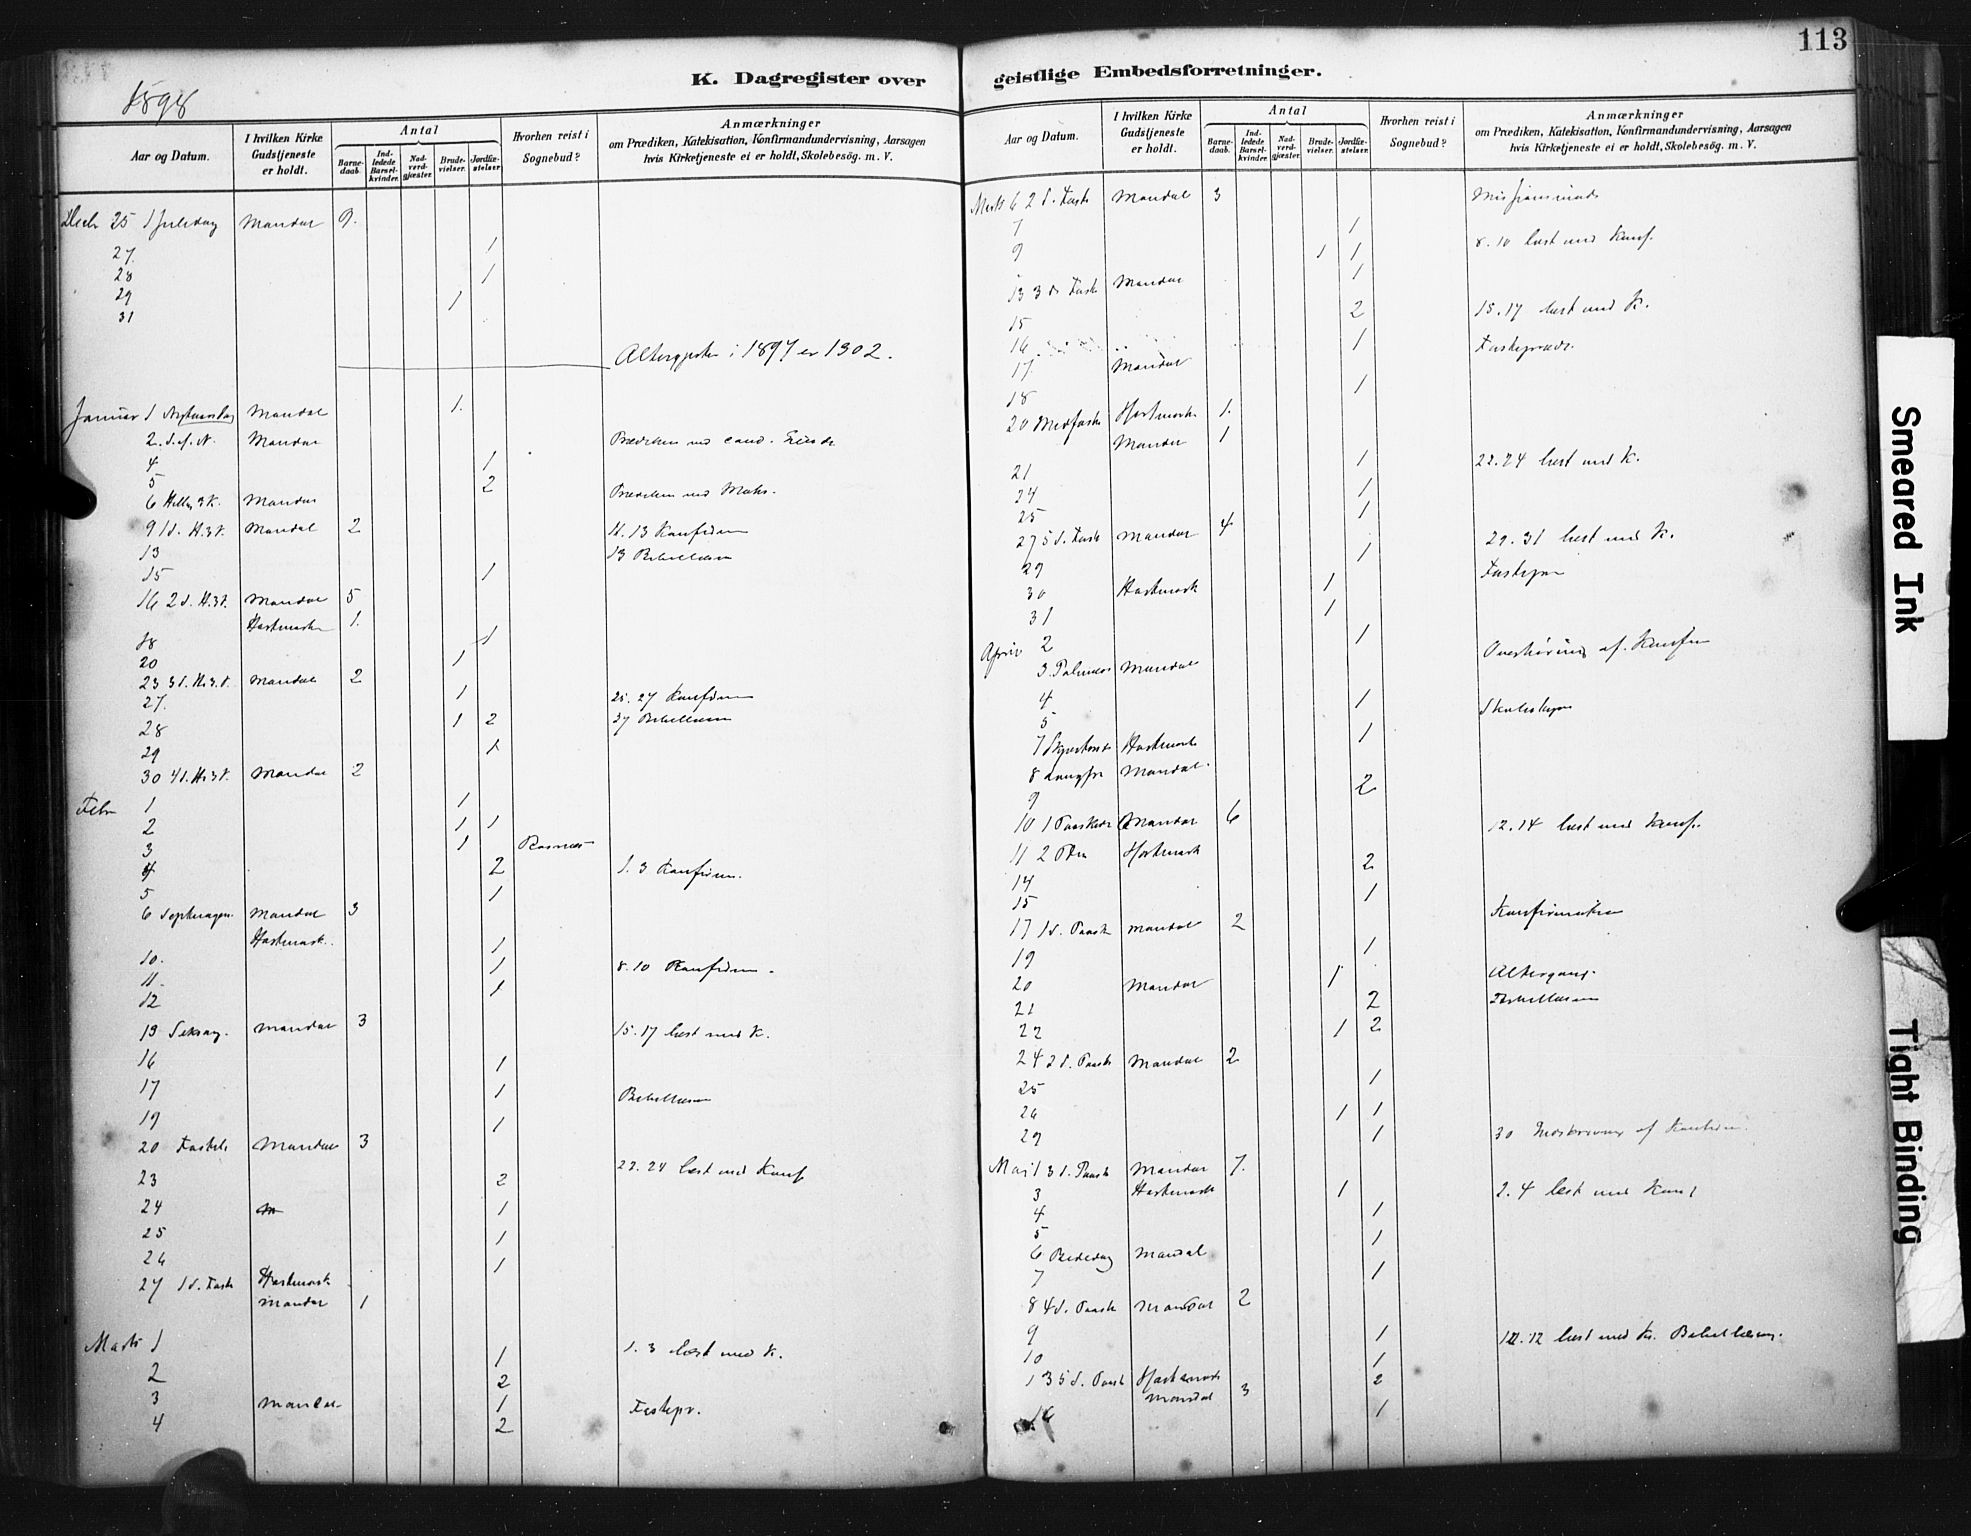 113
K. Dagregister over geistlige Embedsforretninger.
1898
Aar og Datum. | I hvilken Kirke Gudstjeneste er holdt. | Antal | Barnedaab. | Indledede Barselkvinder. | Nadverdgjæster. | Brudevielser. | Jordfæstelser. | Hvorhen reist i Sognebud? | Anmærkninger om Prædiken, Katekisation, Konfirmandundervisning, Aarsagen hvis Kirketjeneste ei er holdt, Skolebesøg. m. V.
Decbr 25 1 Juledag Mandal 9.
27. 1
28 1
29 1
31
i 1897 er 1302.
Januar 1 Nytaarsdag Mandal 1.
2. S. e. N. Mandal Prædiken ved cand.
4 1
5 2
6 Hellig 3 K. Mandal Prædiken ved
9 1 S. H.3.K. Mandal 2 11. 13 Konfirm
13 13 Bibellæsn
15 1
16 2 S. H.3.K. Mandal 5
Hartmark 1.
18 1
20 1
23 3 S. H.3.K. Mandal 2
27. 1 25. 27 Konfirm
28 1 2 Bibellæsn
29 1
30 4 S. H.3.K. Mandal 2
Febr 1 1
2 1 1
3 1 Rosnes
4 2 1. 3 Konfirm.
5 1
6 Septuages. Mandal 3
Hartmark. 1
10. 1 8. 10 Konfirm.
11. 1
12
13 Seksag. Mandal 3 15. 17 læst med K.
16 1
17 1 Bibellæsn
19 1
20 Fastel. Mandal 3
23 2 22. 24 læst med Konf
24 1
25 1
26 1
27 1 S. Faste Hartmark
Mandal 1
Marts 1 1 1. 3 læst med K.
2 2
3 Mandal 1 Fastepr.
4 2
Aar og Datum. | I hvilken Kirke Gudstjeneste er holdt. | Antal | Barnedaab. | Indledede Barselkvinder. | Nadverdgjæster. | Brudevielser. | Jordfæstelser. | Hvorhen reist i Sognebud? | Anmærkninger om Prædiken, Katekisation, Konfirmandundervisning, Aarsagen hvis Kirketjeneste ei er holdt, Skolebesøg. m. V.
Marts 6 2 S. Faste Mandal 3
7 1
9 1 1 8. 10 læst med Konf.
13 3 S. Faste Mandal 1
15 2 15. 17 læst med K.
16 1
17. Mandal Fastepræd.
18 1
20 Midfaste Hartmark 1.
Mandal 1
21 1 22. 24 læst med K.
24 1
25 1
27 5 S. Faste Mandal 4
29 1 29. 31 læst med K.
30 Hartmark 1 Fastepr
31 1
April 2 1 Overhøring af Konfirm
3 Palmes Mandal
4 1
5 1
7 Skjærtorsd Hartmark
8 Langfr Mandal
9 2
10 1 Paaskedag Mandal 6 12. 14 læst med Konf.
11 2 Hartmark
14 2
15 1
17 1 S. Paask Mandal 2 Konfirmation
19 1
20 Mandal 1 Altergang.
21 2 Bibellæsn
22 1 2
24 2 S. Paask Mandal 2
25 1
26 1 1
29 1 30 af Konfirm.
Mai 1 3 S. Paask Mandal 7.
3 Hartmark 1 2. 4 læst med Konf
4 1
5 1
6 Bededag Mandal
7 1
8 4 S. Paask Mandal 2
9 1 12 læst med K. Bibellæsn.
10 1
13 5 S. Paask Hartmark 2
Mandal 3
16 1
Smeared Ink
Tight Binding